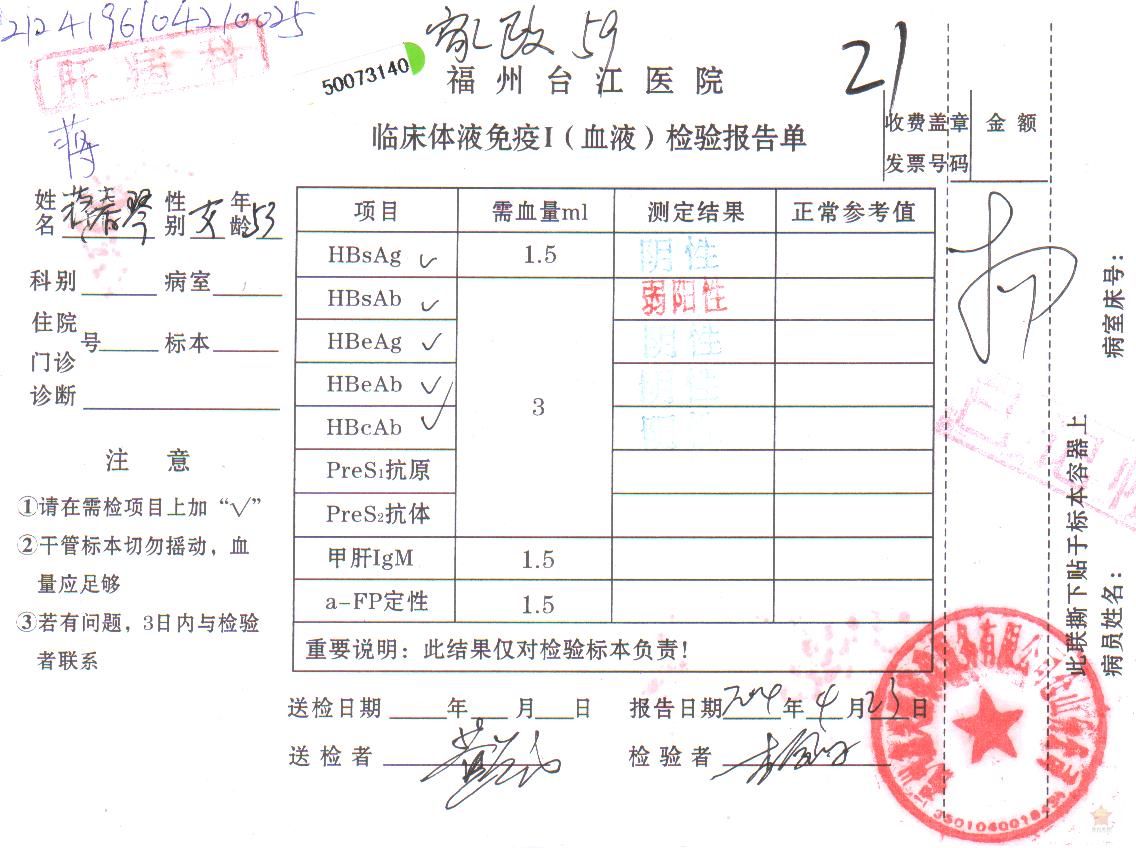 212419610421002S
肝病科
50073140
家政 59
21
福州台江医院
临床体液免疫I（血液）检验报告单
收费盖章 金额
发票号码
蒋
姓名 性别 女 年龄 53
科别 病室
住院
门诊 号 标本
诊断
注 意
①请在需检项目上加“√”
②干管标本切勿摇动，血
量应足够
③若有问题，3日内与检验
者联系
项目 需血量ml 测定结果 正常参考值
HBsAg √ 1.5 阴性
HBsAb √ 3 弱阳性
HBeAg √ 阴性
HBeAb √ 阴性
HBcAb √
PreS₁抗原
PreS₂抗体
甲肝IgM 1.5
a-FP定性 1.5
重要说明：此结果仅对检验标本负责！
送检日期 年 月 日 报告日期 2004 年 4 月 23 日
送检者 检验者
病室床号：
此联撕下贴于标本容器上
病员姓名：
有限公司